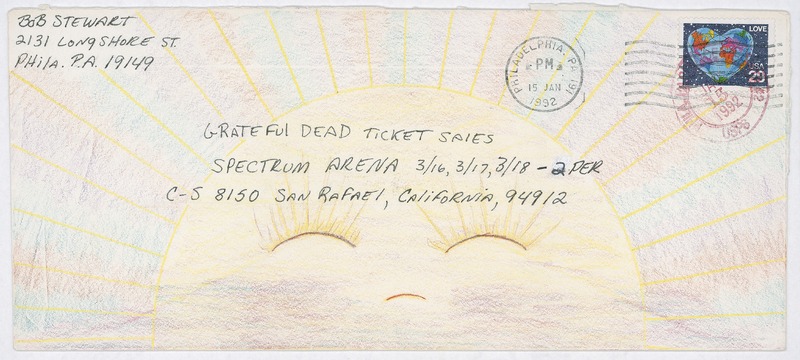 BOB STEWART
2131 LONGSHORE ST.
PHila. P.A. 19149
PHILADELPHIA, PA 191
PM
15 JAN
1992
LOVE
USA
29
1992
USPS
GRATEFUL DEAD TICKET SALES
SPECTRUM ARENA 3/16, 3/17, 3/18 - 2 PER
C-S 8150 SAN RAFAEL, CALIFORNIA, 94912